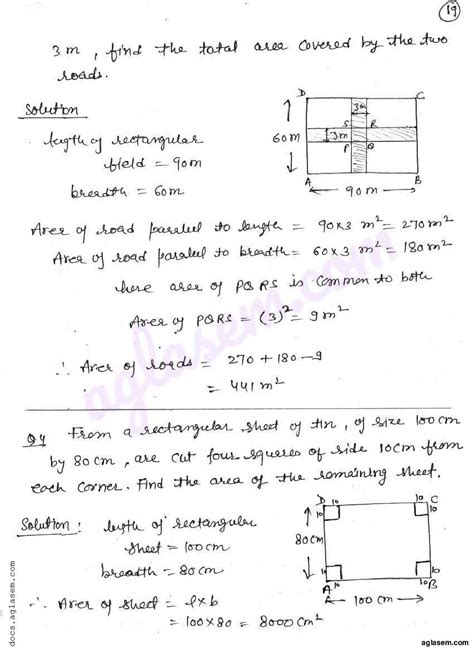 19
3m, find the total area covered by the two
roads.
Solution
length of rectangular
field = 90m
breadth = 60m
D C
3m
S R
60m
3m
P Q
A B
90m
Area of road parallel to length = 90×3 m² = 270m²
Area of road parallel to breadth = 60×3 m² = 180m²
here area of PQRS is common to both
Area of PQRS = (3)² = 9m²
∴ Area of roads = 270 + 180 - 9
= 441 m²
Q4 From a rectangular sheet of tin, of size 100cm
by 80cm, are cut four squares of side 10cm from
each corner. Find the area of the remaining sheet.
Solution : length of rectangular
sheet = 100cm
breadth = 80cm
∴ Area of sheet = l×b
= 100×80 = 8000cm²
D 10 10 C
10 10
80cm
10 10
A 10 10 B
100cm
aglasem.com
docs.aglasem.com
aglasem.com